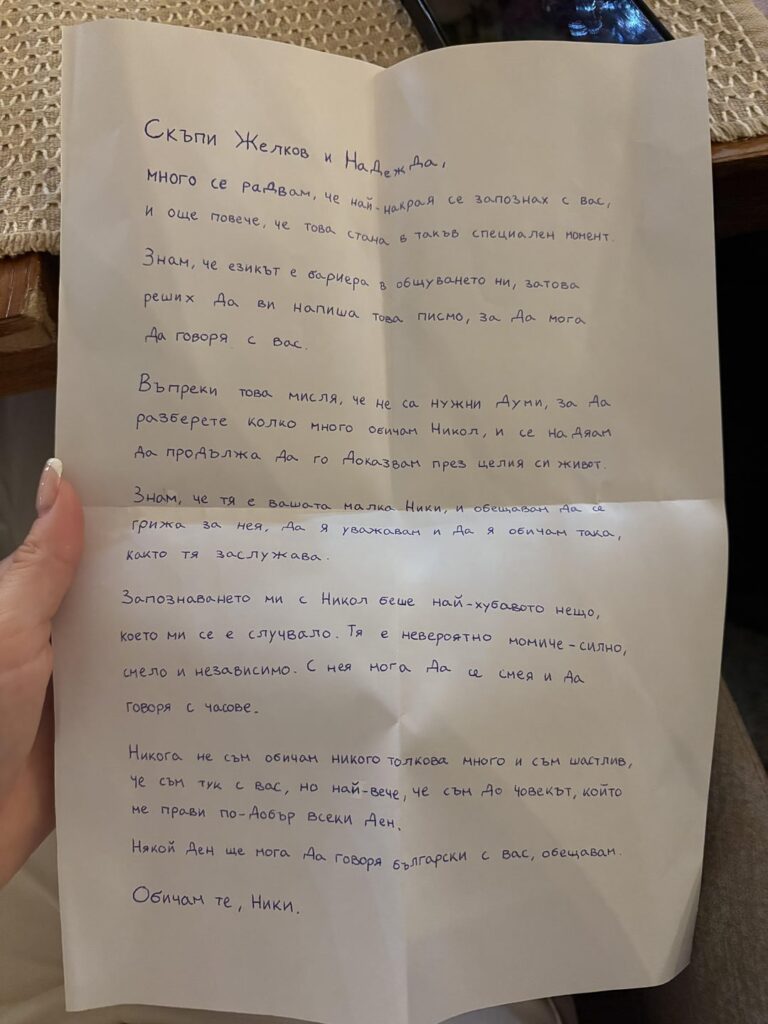 Скъпи Желков и Надежда,
много се радвам, че най-накрая се запознах с вас,
и още повече, че това стана в такъв специален момент.
Знам, че езикът е бариера в общуването ни, затова
реших да ви напиша това писмо, за да мога
да говоря с вас.
Въпреки това мисля, че не са нужни думи, за да
разберете колко много обичам Никол, и се надяам
да продължа да го доказвам през целия си живот.
Знам, че тя е вашата малка Ники, и обещавам да се
грижа за нея, да я уважавам и да я обичам така,
както тя заслужава.
Запознаването ми с Никол беше най-хубавото нещо,
което ми се е случвало. Тя е невероятно момиче - силно,
смело и независимо. С нея мога да се смея и да
говоря с часове.
Никога не съм обичам никого толкова много и съм щастлив,
че съм тук с вас, но най-вече, че съм до човекът, който
ме прави по-добър всеки ден.
Някой ден ще мога да говоря български с вас, обещавам.
Обичам те, Ники.